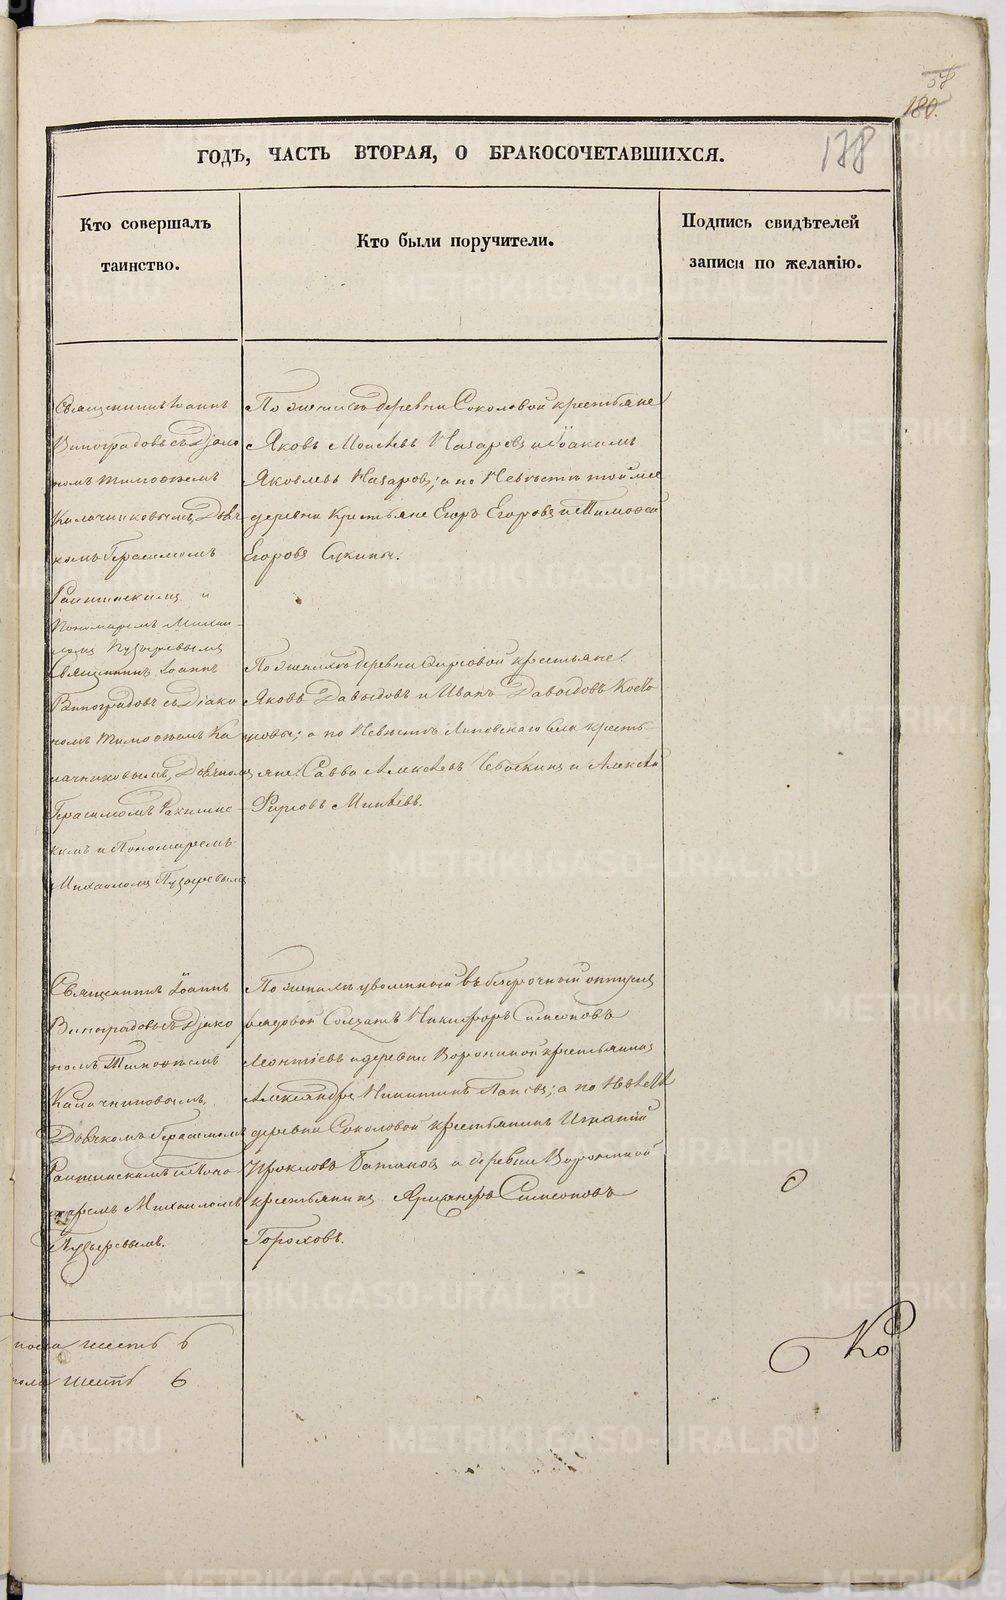 58
180.
138
ГОДЪ, ЧАСТЬ ВТОРАЯ, О БРАКОСОЧЕТАВШИХСЯ.
Кто совершалъ
таинство.
Кто были поручители.
Подпись свидѣтелей
записи по желанію.
Священникъ Іоаннъ
Виноградовъ съ Діако
номъ Тимоѳеемъ
Калачниковымъ, Дьяч
комъ Герасимомъ
и
Пономаремъ Михаи
ломъ Пузыревымъ
По женихѣ деревни Соколовой крестьяне
Яковъ Моисѣевъ Назаровъ и Іоакимъ
Яковлевъ Назаровъ; а по Невѣстѣ той же
деревни Крестьяне Егоръ Егоровъ и Тимоѳей
Егоровъ Сукины.
Священникъ Іоаннъ
Виноградовъ съ Діако
номъ Тимоѳеемъ Ка
лачниковымъ, Дьячкомъ
Герасимомъ
кимъ и Пономаремъ
Михаиломъ Пузыревымъ
По женихѣ деревни крестьяне
Яковъ Давыдовъ и Иванъ Давыдовъ
а по Невѣстѣ Липовскаго села кресть
яне: Савва Алексѣевъ и Алексѣй
Фирсовъ Минѣевъ.
Священникъ Іоаннъ
Виноградовъ съ Діако
номъ Тимоѳеемъ
Калачниковымъ,
Дьячкомъ Герасимомъ
и Поно
маремъ Михаиломъ
Пузыревымъ.
По женихѣ уволенный въ безсрочный отпускъ
рядовой Солдатъ Никифоръ Симеоновъ
Леонтіевъ и деревни Ворониной крестьянинъ
Александръ Никитинъ а по Невѣстѣ
деревни Соколовой крестьянинъ Игнатій
Прокловъ и деревни Ворониной
крестьянинъ Симеоновъ
Гороховъ.
шесть 6
шесть 6
Ко
METRIKI.GASO-URAL.RU